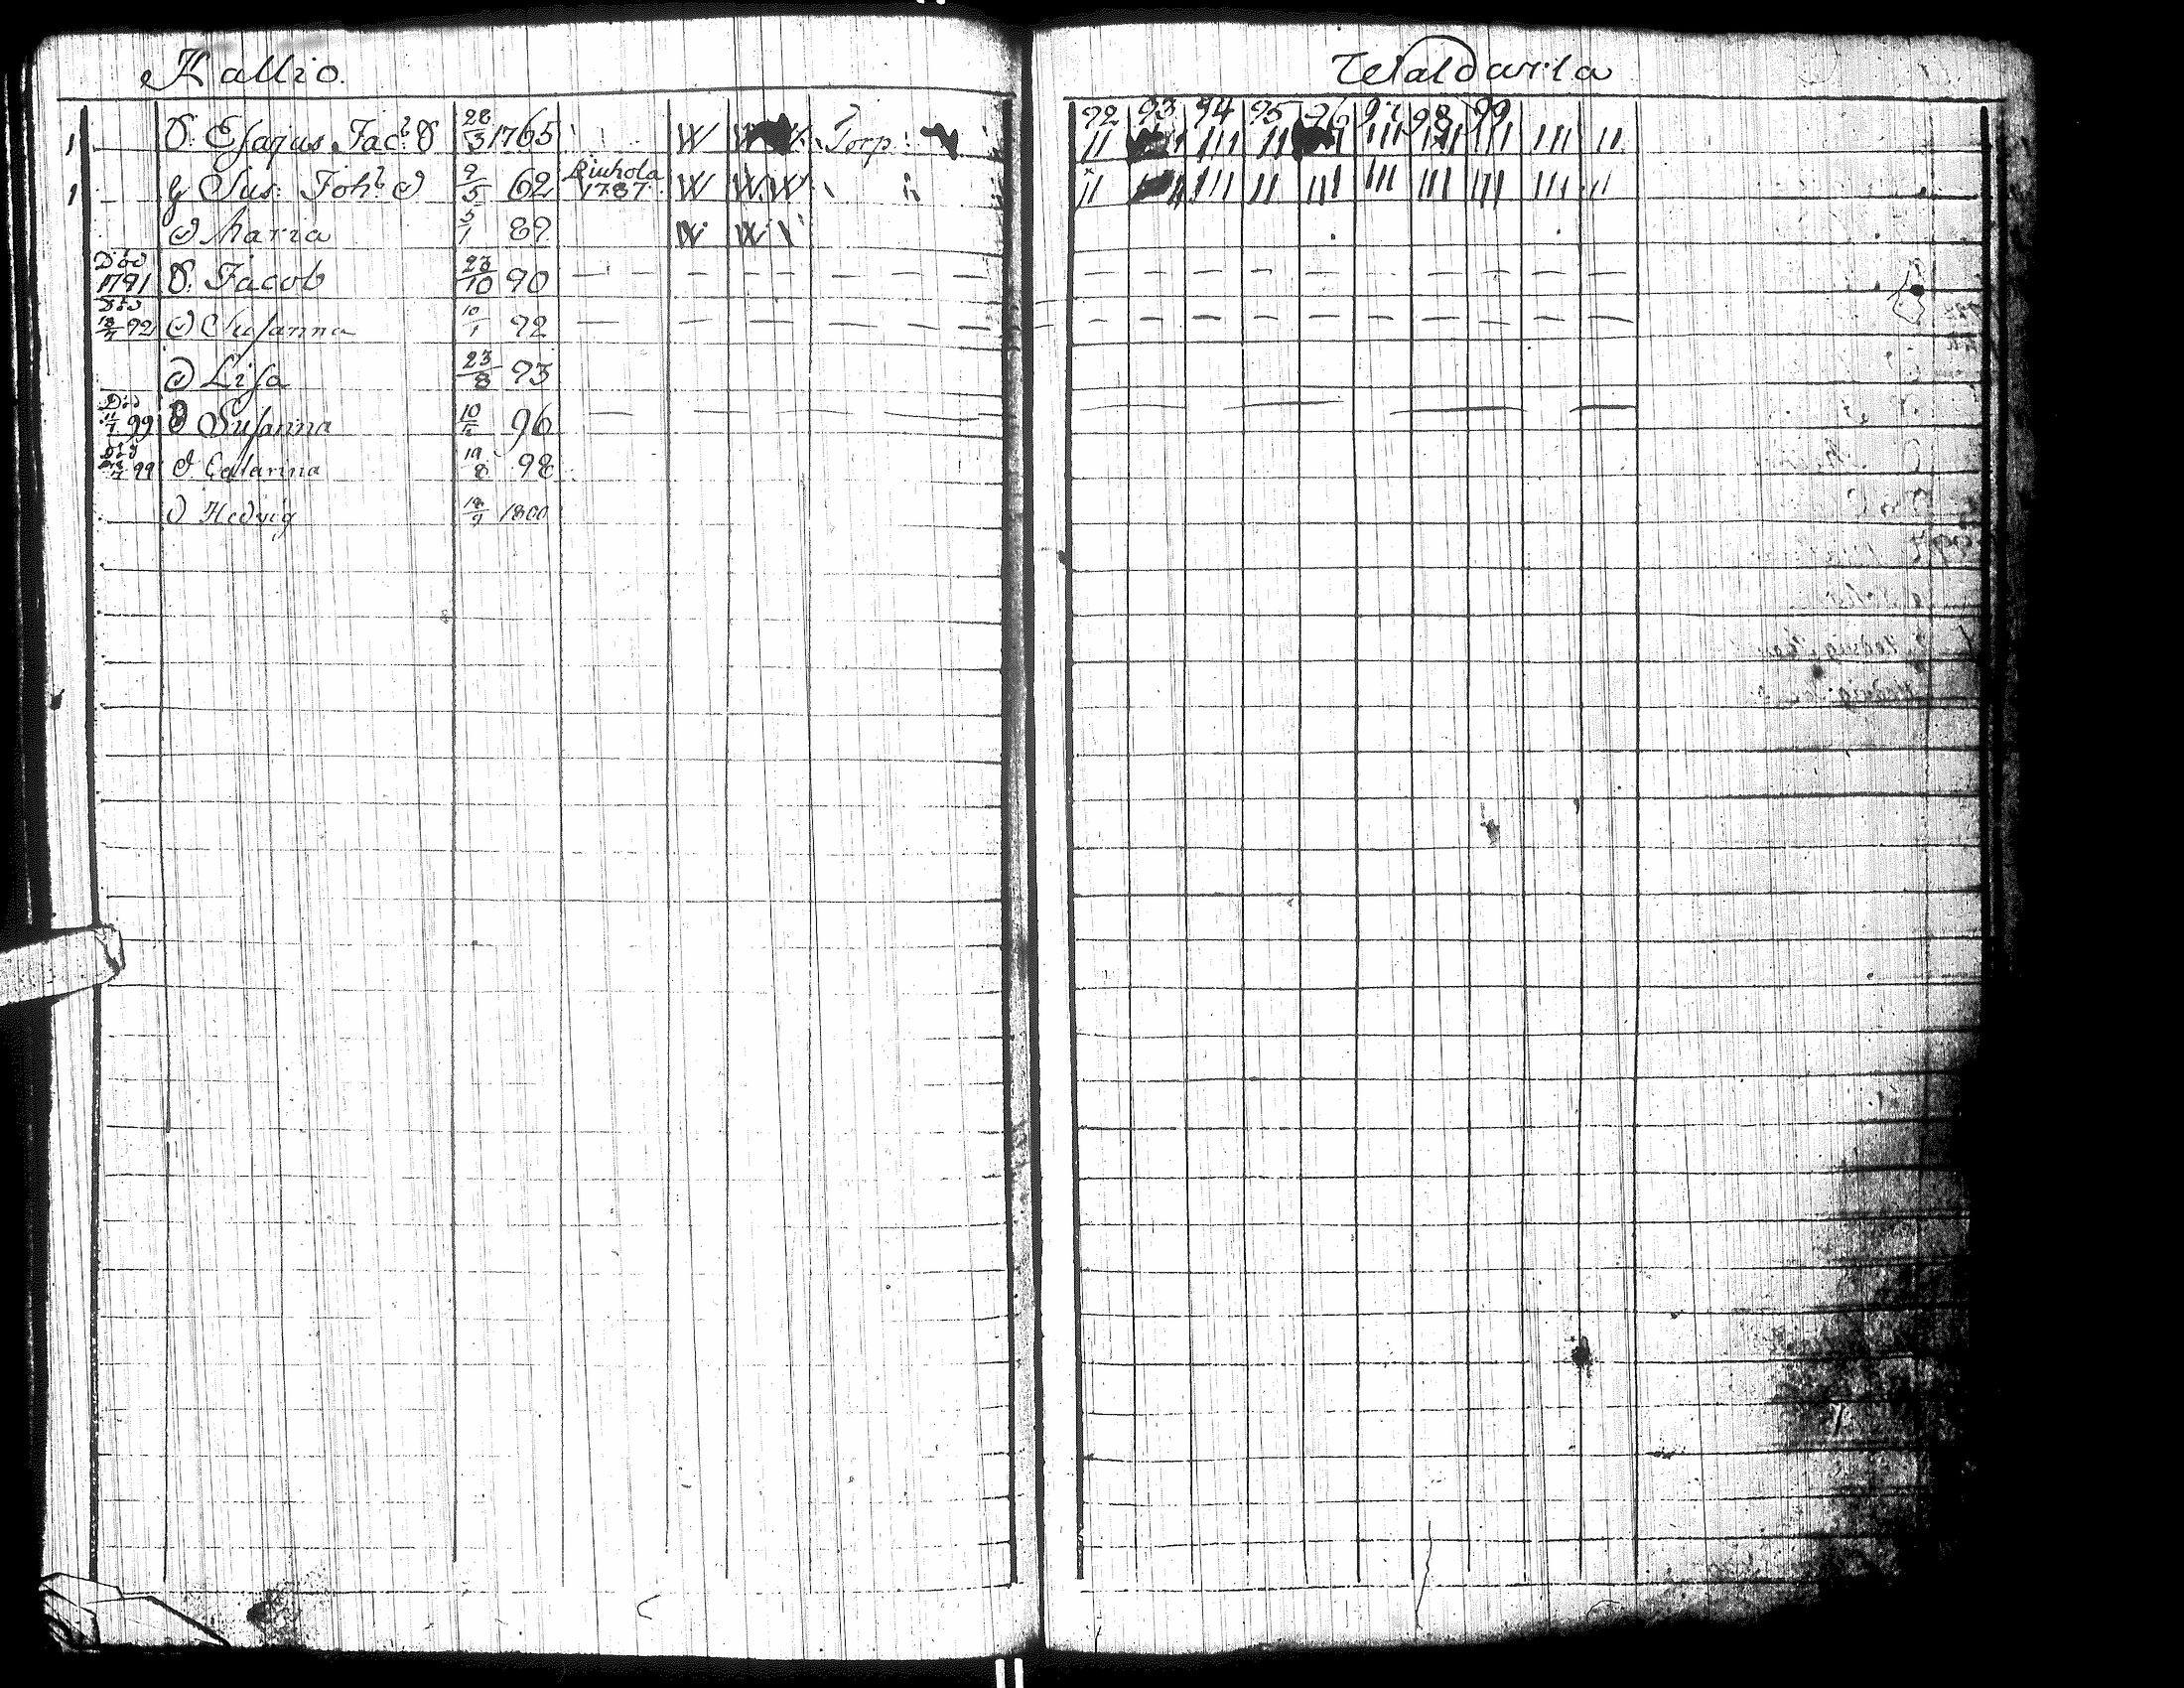 Kallio.
1 S. Esaius Jac: S 28/3 1765 W Torp:
1 H Sus: Joh: D 9/5 62 Riuhola 1787 W W.W
D Maria 5/1 89 W W
Död 1791 S. Jacob 23/10 90 — — — — — — — —
Död 92 D Susanna 10/1 92 — — — — — — — —
D Lisa 23/8 93
Död 99 D Susanna 96 — — — —
Död 99 D Catarina 19/8 98
D Hedvig 18/9 1800
92 93 94 95 96 97 98 99
II III II III III III III II
II III II III III III III III II
— — — — — — — — — —
— — — — — — — — — —
— — — —